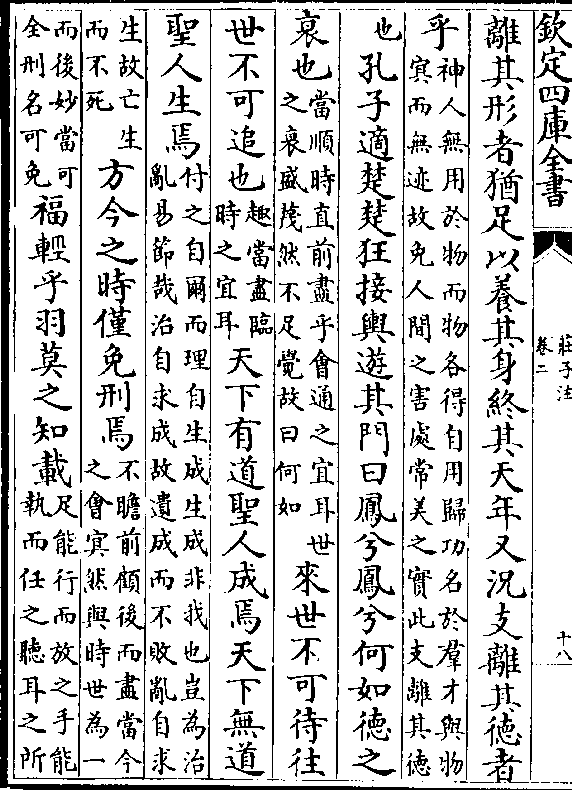 欽定四庫全書
莊子注
卷二
十八
離其形者猶足以養其身終其天年又況支離其德者
乎神人無用於物而物各得自用歸功名於羣才與物
冥而無迹故免人間之害處常美之實此支離其德
也孔子適楚楚狂接輿遊其門曰鳳兮鳳兮何如德之
衰也當順時直前盡乎會通之宜耳世
之衰盛蔑然不足覺故曰何如來世不可待往
世不可追也趣當盡臨
時之宜耳天下有道聖人成焉天下無道
聖人生焉付之自爾而理自生成生成非我也豈為治
亂易節哉治自求成故遺成而不敗亂自求
生故亡生
而不死方今之時僅免刑焉不瞻前顧後而盡當今
之會冥然與時世為一
而後妙當可
全刑名可免福輕乎羽莫之知載足能行而放之手能
執而任之聽耳之所